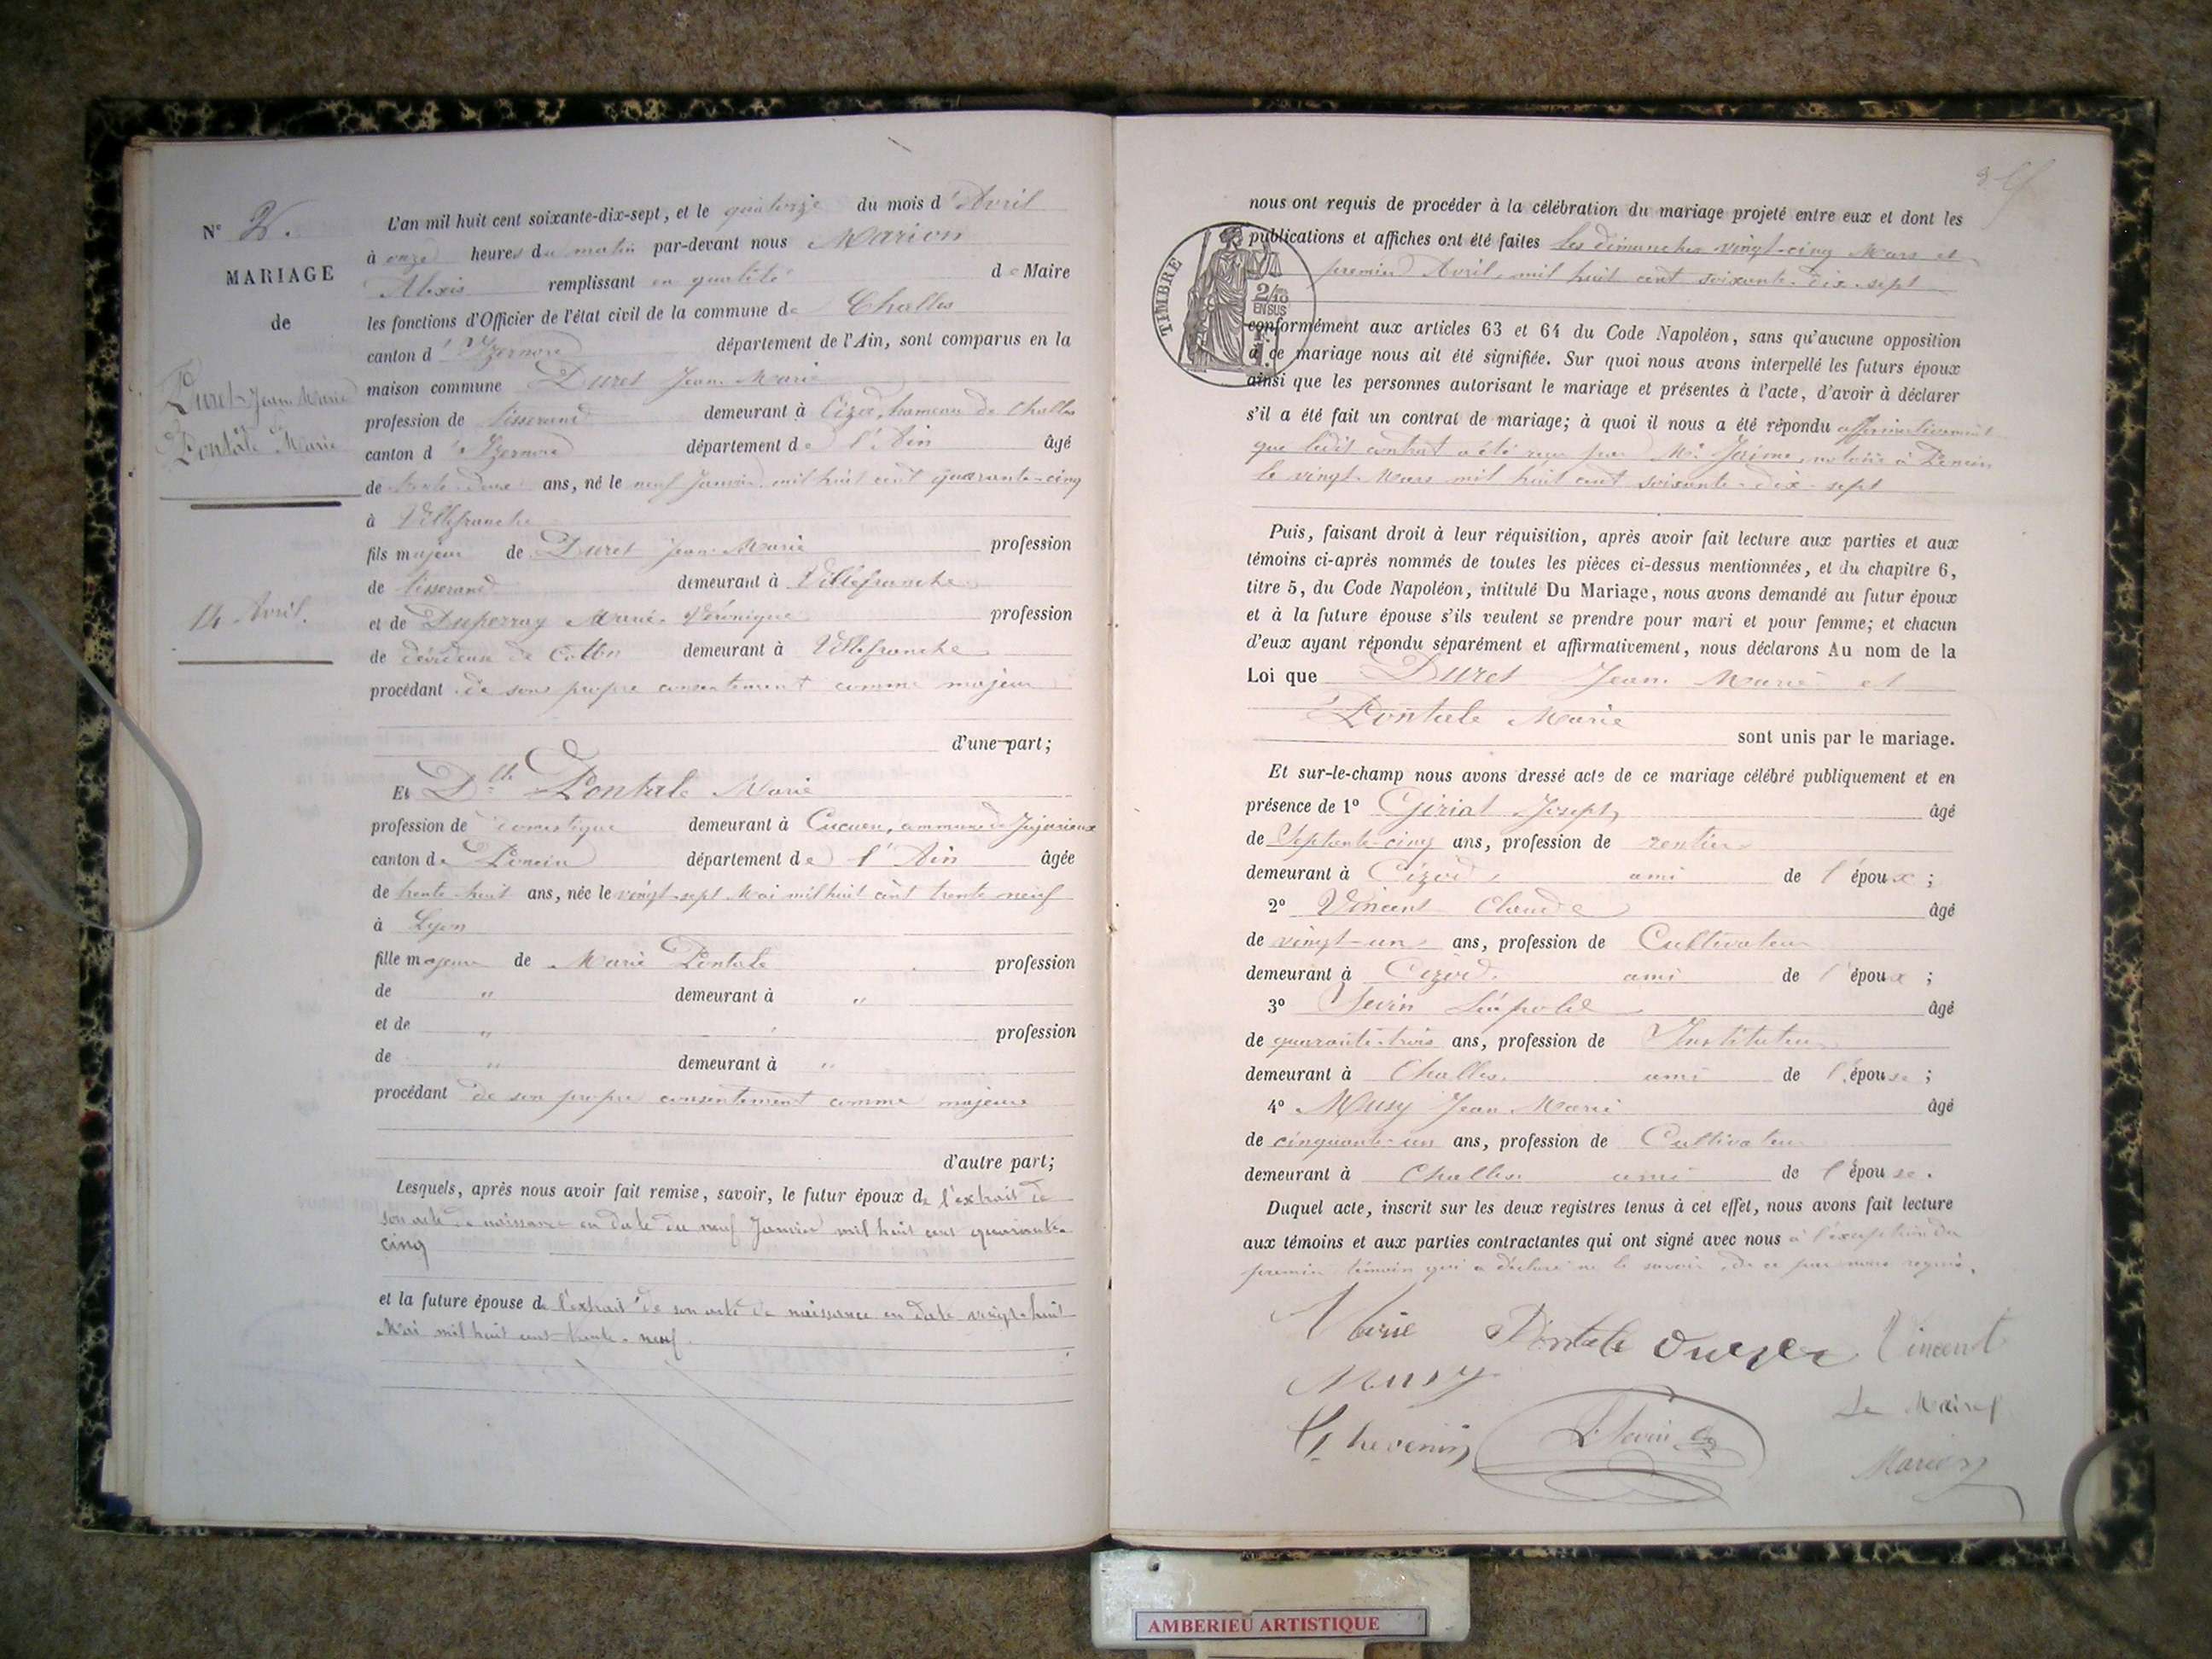 N° 2.
MARIAGE
de
Duret Jean Marie
Pontale Marie
14 Avril.
L'an mil huit cent soixante-dix-sept, et le quatorze du mois d'Avril
à onze heures du matin par-devant nous Marion
Alexis remplissant en qualité de Maire
les fonctions d'Officier de l'état civil de la commune de Challes
canton d'Izernore département de l'Ain, sont comparus en la
maison commune Duret Jean Marie
profession de tisserand demeurant à Cizod, hameau de Challes
canton d'Izernore département de l'Ain âgé
de trente-deux ans, né le neuf Janvier mil huit cent quarante-cinq
à Villefranche
fils majeur de Duret Jean Marie profession
de tisserand demeurant à Villefranche
et de Duperray Marie Véronique profession
de dévideuse de Coton demeurant à Villefranche
procédant de son propre consentement comme majeur
d'une part;
Et Dlle Pontale Marie
profession de domestique demeurant à Cucuen, commune de Jujurieux
canton de Poncin département de l'Ain âgée
de trente-huit ans, née le vingt-sept Mai mil huit cent trente neuf
à Lyon
fille majeure de Marie Pontale profession
de " demeurant à "
et de " profession
de " demeurant à "
procédant de son propre consentement comme majeure
d'autre part;
Lesquels, après nous avoir fait remise, savoir, le futur époux de l'extrait de
son acte de naissance en date du neuf Janvier mil huit cent quarante-
cinq
et la future épouse de l'extrait de son acte de naissance en date vingt-huit
Mai mil huit cent trente-neuf.
nous ont requis de procéder à la célébration du mariage projeté entre eux et dont les
publications et affiches ont été faites les dimanches vingt-cinq Mars et
premier Avril mil huit cent soixante-dix-sept
TIMBRE
2/10
EN SUS
conformément aux articles 63 et 64 du Code Napoléon, sans qu'aucune opposition
à ce mariage nous ait été signifiée. Sur quoi nous avons interpellé les futurs époux
ainsi que les personnes autorisant le mariage et présentes à l'acte, d'avoir à déclarer
s'il a été fait un contrat de mariage; à quoi il nous a été répondu affirmativement
que ledit contrat a été reçu par Me notaire à Poncin
le vingt Mars mil huit cent soixante-dix-sept
Puis, faisant droit à leur réquisition, après avoir fait lecture aux parties et aux
témoins ci-après nommés de toutes les pièces ci-dessus mentionnées, et du chapitre 6,
titre 5, du Code Napoléon, intitulé Du Mariage, nous avons demandé au futur époux
et à la future épouse s'ils veulent se prendre pour mari et pour femme; et chacun
d'eux ayant répondu séparément et affirmativement, nous déclarons Au nom de la
Loi que Duret Jean Marie et
Pontale Marie
sont unis par le mariage.
Et sur-le-champ nous avons dressé acte de ce mariage célébré publiquement et en
présence de 1° Giriat Joseph âgé
de Septante-cinq ans, profession de rentier
demeurant à Cizod, ami de l'époux;
2° Vincent Claude âgé
de vingt-un ans, profession de Cultivateur
demeurant à Cizod. ami de l'époux;
3° Sevin Léopold âgé
de quarante-trois ans, profession de Instituteur
demeurant à Challes. ami de l'épouse;
4° Musy Jean Marie âgé
de cinquante-un ans, profession de Cultivateur
demeurant à Challes. ami de l'épouse.
Duquel acte, inscrit sur les deux registres tenus à cet effet, nous avons fait lecture
aux témoins et aux parties contractantes qui ont signé avec nous à l'exception du
premier témoin qui a déclaré ne le savoir, de ce par nous requis.
Marie Pontale Vincent
Musy
Le Maire
Thevenin
Marion
AMBERIEU ARTISTIQUE